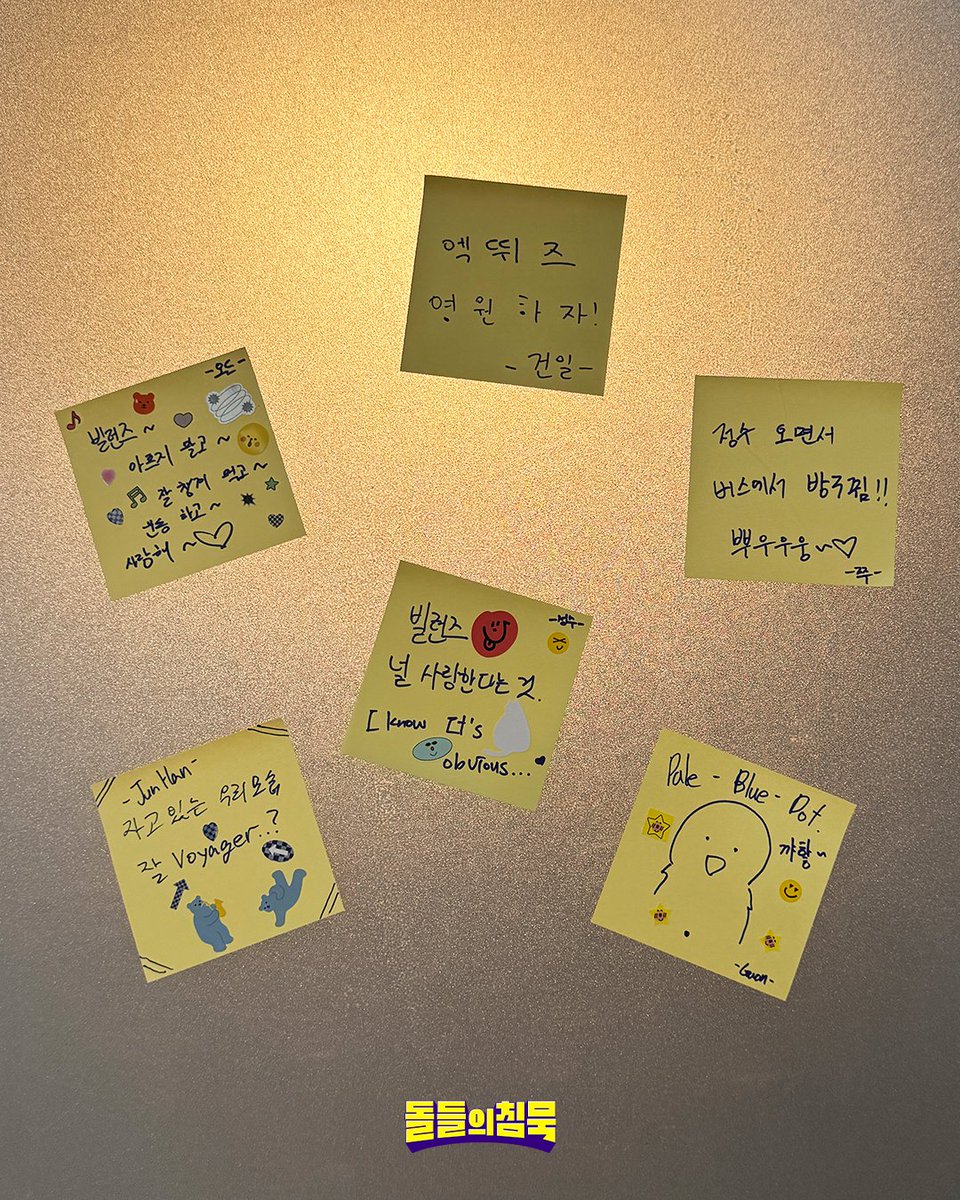 엑뛰즈
영원하자!
-건일-
-오드-
빌런즈~
아프지 말고~
잘 챙겨 먹고~
운동 하고~
사랑해~
정수 오면서
버스에서 방구뀜!!
뿌우우웅~
-쭈-
빌런즈
-정수-
널 사랑한다는 것.
I know It's
obvious...
-Jun Han-
자고 있는 우리 모습
잘 Voyager...?
Pale - Blue - Dot.
꺄항~
-Gaon-
돌들의침묵